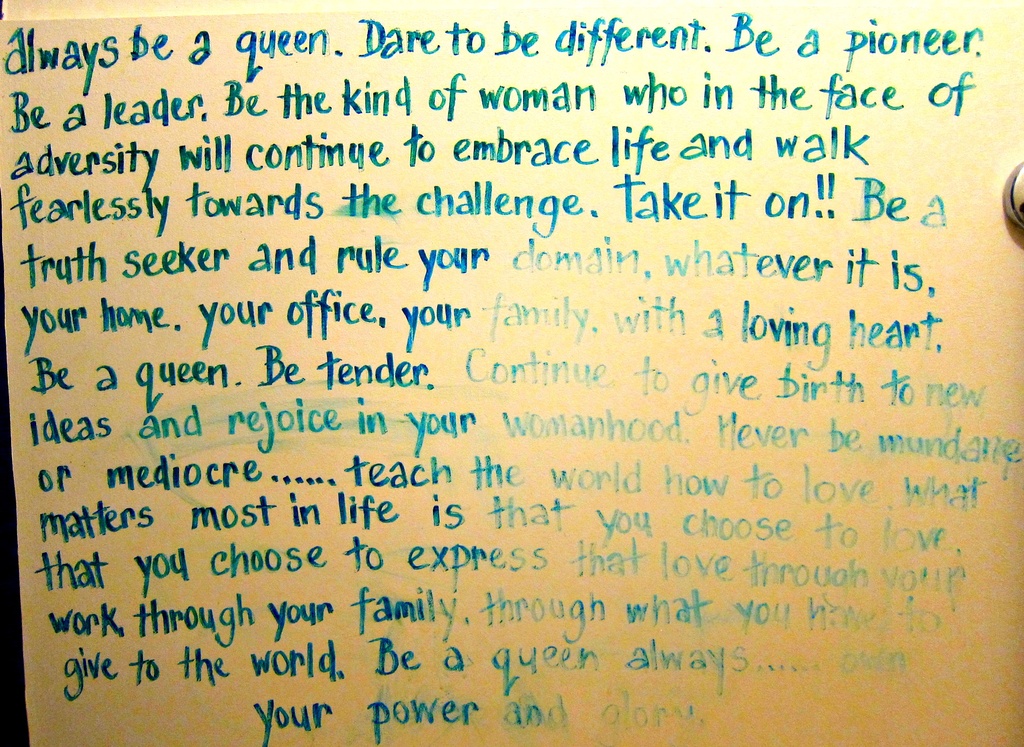 always be a queen. Dare to be different. Be a pioneer.
Be a leader. Be the kind of woman who in the face of
adversity will continue to embrace life and walk
fearlessly towards the challenge. Take it on!! Be a
truth seeker and rule your domain, whatever it is,
your home. your office, your family. with a loving heart.
Be a queen. Be tender. Continue to give birth to new
ideas and rejoice in your womanhood. Never be mundane
or mediocre...... teach the world how to love. what
matters most in life is that you choose to love.
that you choose to express that love through your
work, through your family, through what you have to
give to the world. Be a queen always...... own
your power and glory.